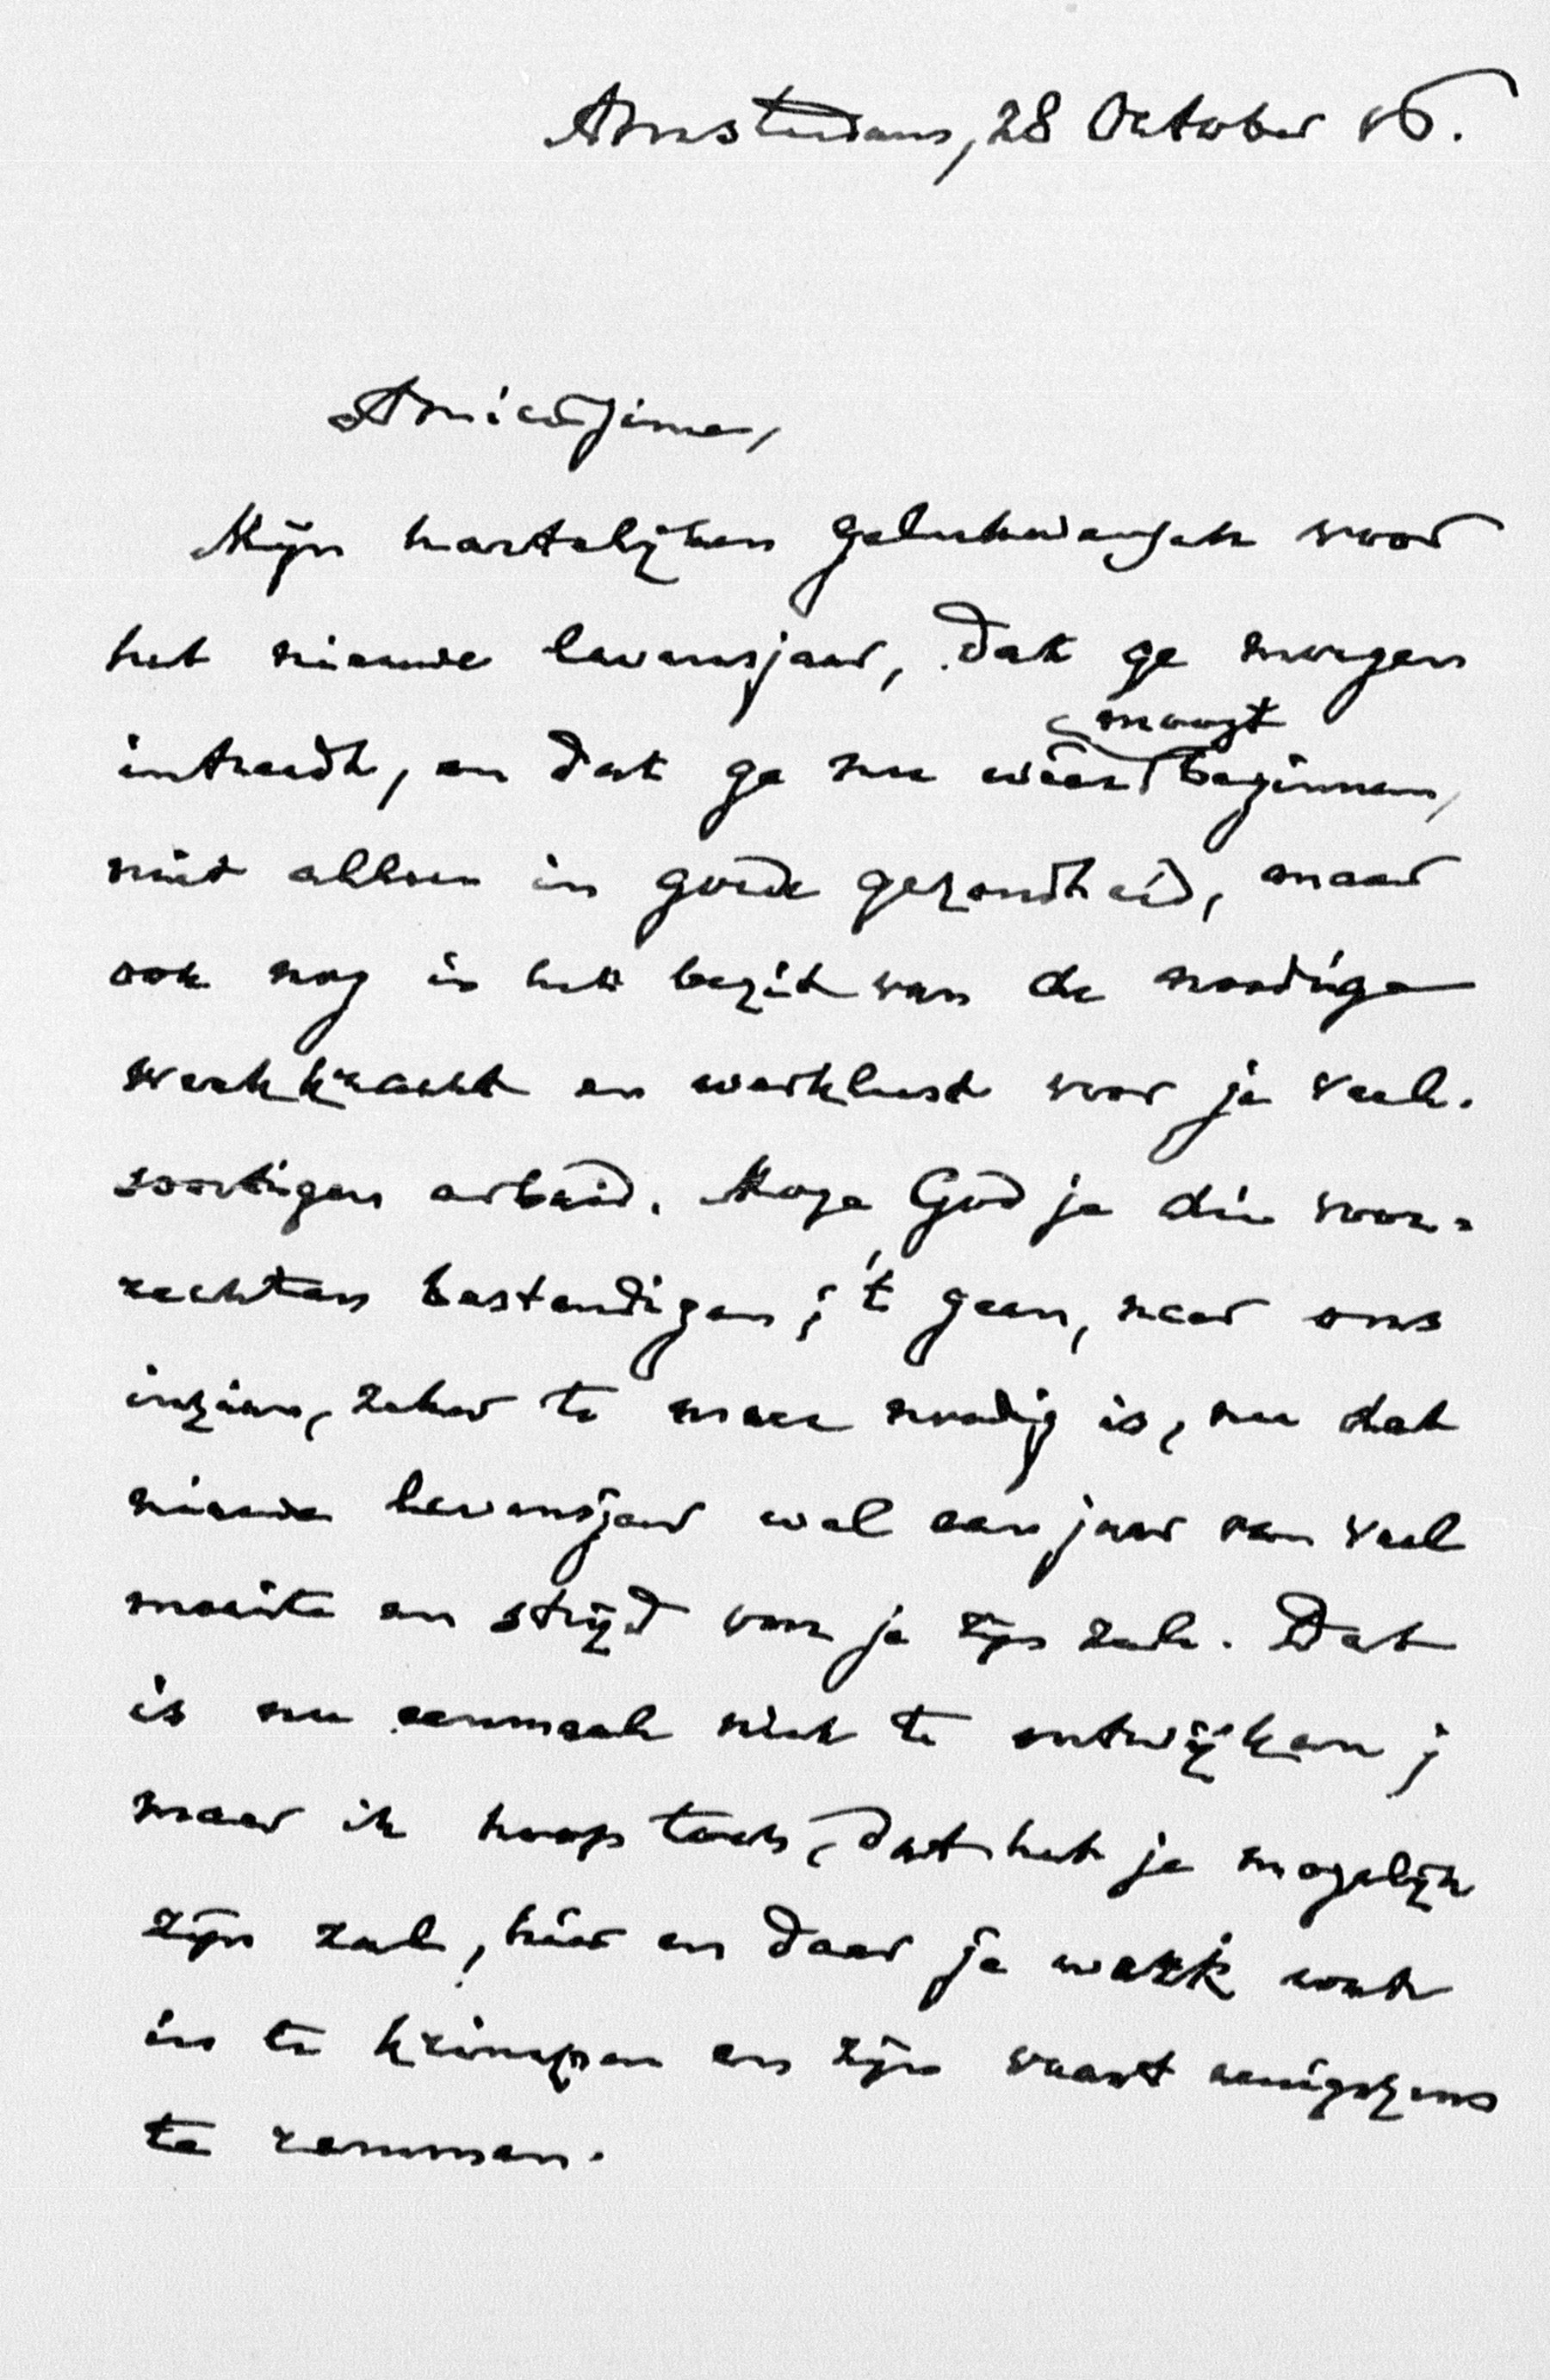 Amsterdam, 28 October 16.
Amicissime,
Mijn hartelijken gelukwensch voor
het nieuwe levensjaar, dat ge morgen
intreedt, en dat ge nu weer moogt beginnen,
niet alleen in goede gezondheid, maar
ook nog in het bezit van de noodige
werkkracht en werklust voor je veel-
soortigen arbeid. Moge God je die voor-
rechten bestendigen; 't geen, naar ons
inzien, zeker te meer noodig is, nu dat
nieuwe levensjaar wel een jaar van veel
moeite en strijd voor je zijn zal. Dat
is nu eenmaal niet te ontwijken;
maar ik hoop toch, dat het je mogelijk
zijn zal, hier en daar je werk wat
in te krimpen en zijn vaart eenigszins
te remmen.